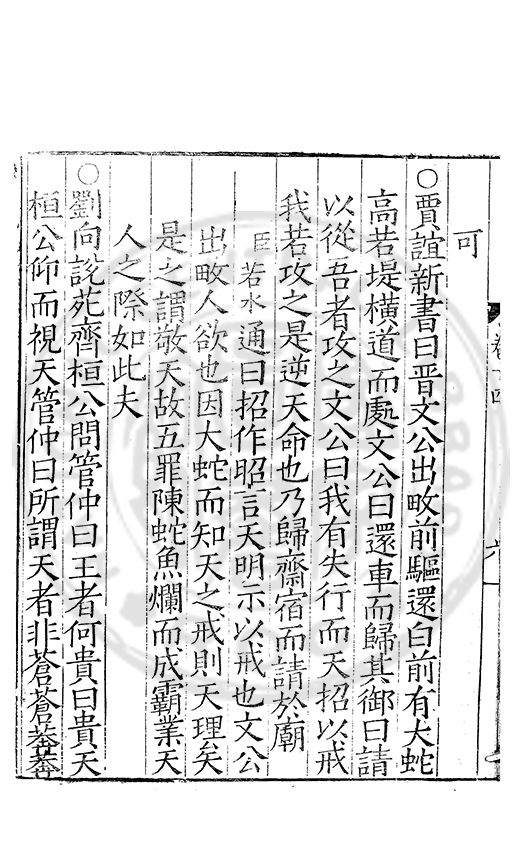 可
○賈誼新書曰晋文公出畋前驅還白前有大蛇
高若堤橫道而處文公曰還車而歸其御曰請
以從吾者攻之文公曰我有失行而天招以戒
我若攻之是逆天命也乃歸齋宿而請於廟
臣若水通曰招作昭言天明示以戒也文公
出畋人欲也因大蛇而知天之戒則天理矣
是之謂敬天故五罪陳蛇魚爛而成霸業天
人之際如此夫
○劉向說苑齊桓公問管仲曰王者何貴曰貴天
桓公仰而視天管仲曰所謂天者非蒼蒼莽莽